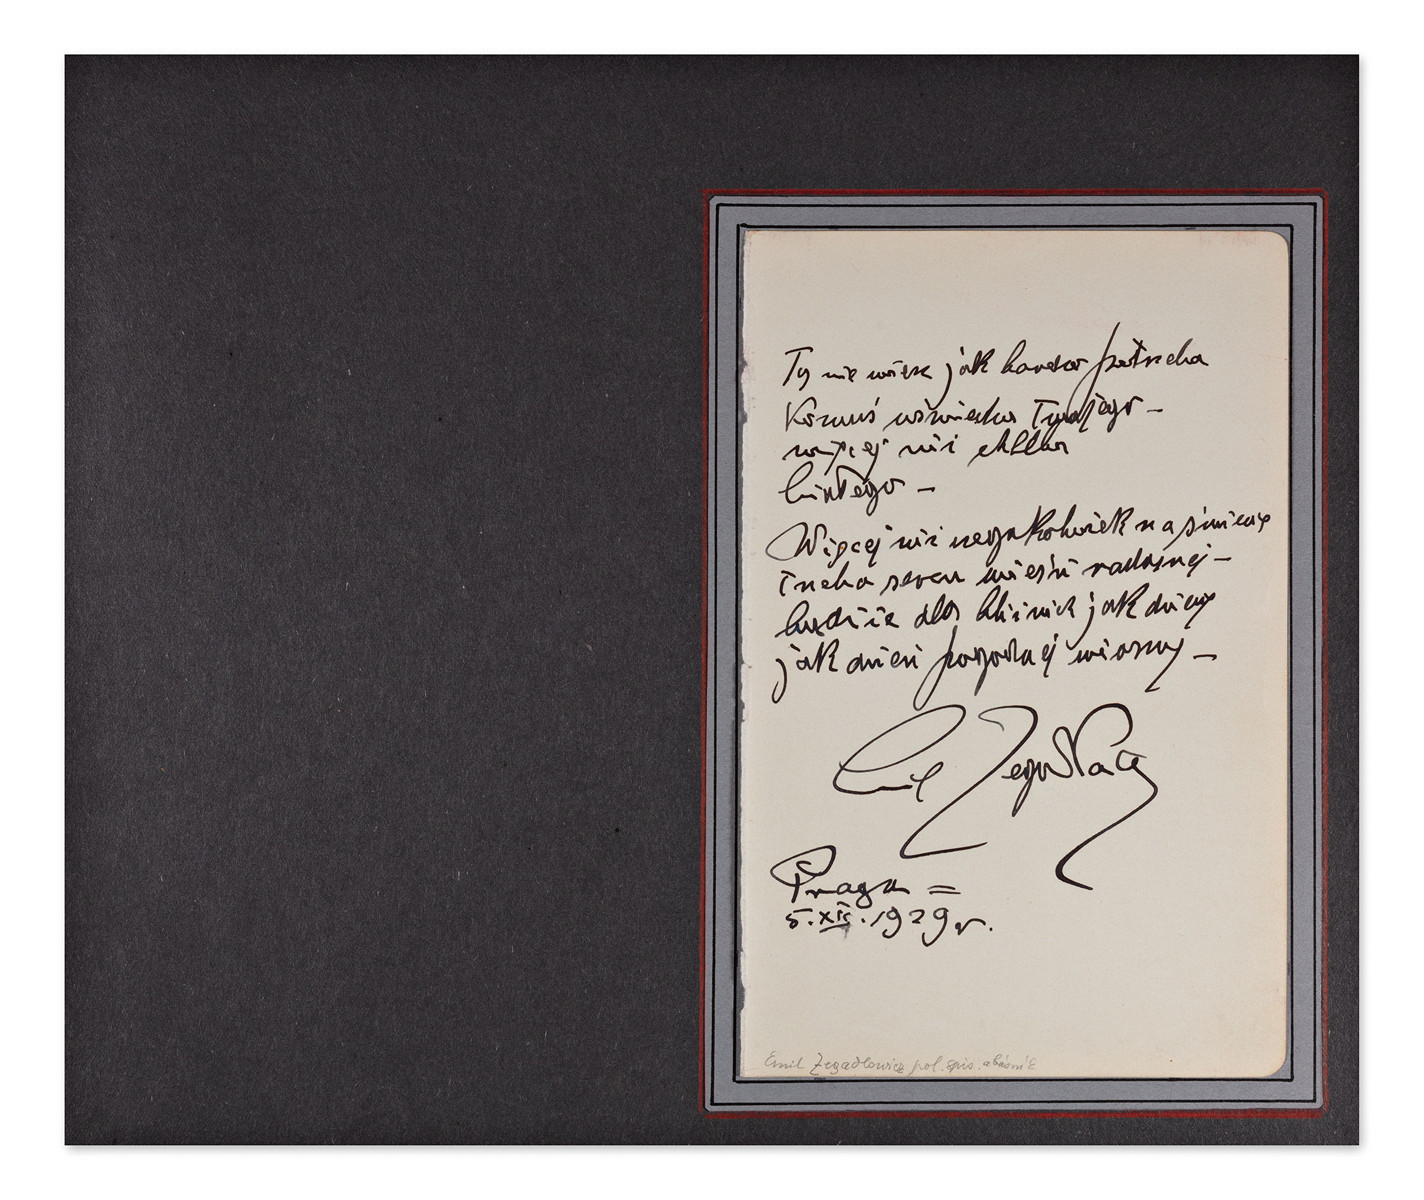 Ty nie wiesz jak bardzo potrzeba
komuś uśmiechu Twojego –
więcej niż chleba
białego –
Więcej niż czegokolwiek na świecie
trzeba sercu wieści radosnej –
bądźcie dla bliźnich jak dzieci
jak dzień pogodnej wiosny –
Emil Zegadłowicz
Praga =
5.XII.1929 r.
Emil Zegadłowicz pol. spis. a básník